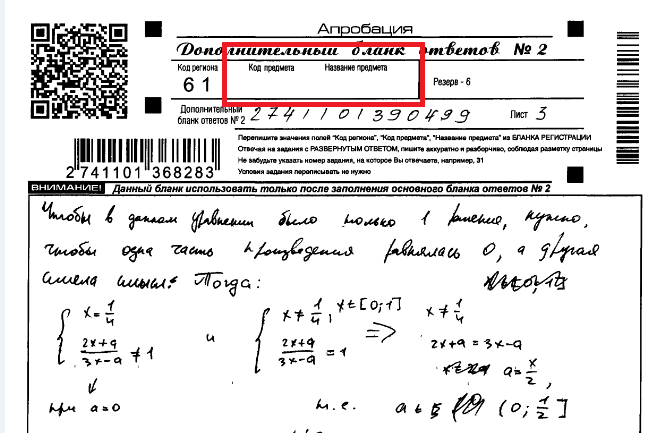 Апробация
Дополнительный бланк ответов № 2
Код региона Код предмета Название предмета Резерв - 6
6 1
Дополнительный бланк ответов № 2 2741101390499 Лист 3
2 741101 368283
Перепишите значения полей "Код региона", "Код предмета", "Название предмета" из БЛАНКА РЕГИСТРАЦИИ
Отвечая на задания с РАЗВЕРНУТЫМ ОТВЕТОМ, пишите аккуратно и разборчиво, соблюдая разметку страницы
Не забудьте указать номер задания, на которое Вы отвечаете, например, 31
Условия задания переписывать не нужно
ВНИМАНИЕ! Данный бланк использовать только после заполнения основного бланка ответов № 2
Чтобы в данном уравнении было только 1 решение, нужно,
чтобы одна часть произведения равнялась 0, а другая
имела смысл. Тогда:
x = 1/4 и x ≠ 1/4, x ∈ [0; 1] => x ≠ 1/4
(2x+a)/(3x-a) ≠ 1 (2x+a)/(3x-a) = 1 2x+a = 3x-a
a = x/2,
при a=0 т.е. a ∈ (0; 1/2]